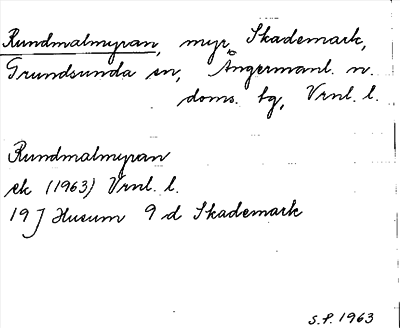 Rundmalmyran, myr, Skademark,
Grundsunda sn, Ångermanl. n.
doms. tg, Vrnl. l.
Rundmalmyran
ek (1963) Vrnl. l.
19 J Husum 9 d Skademark
S.P. 1963